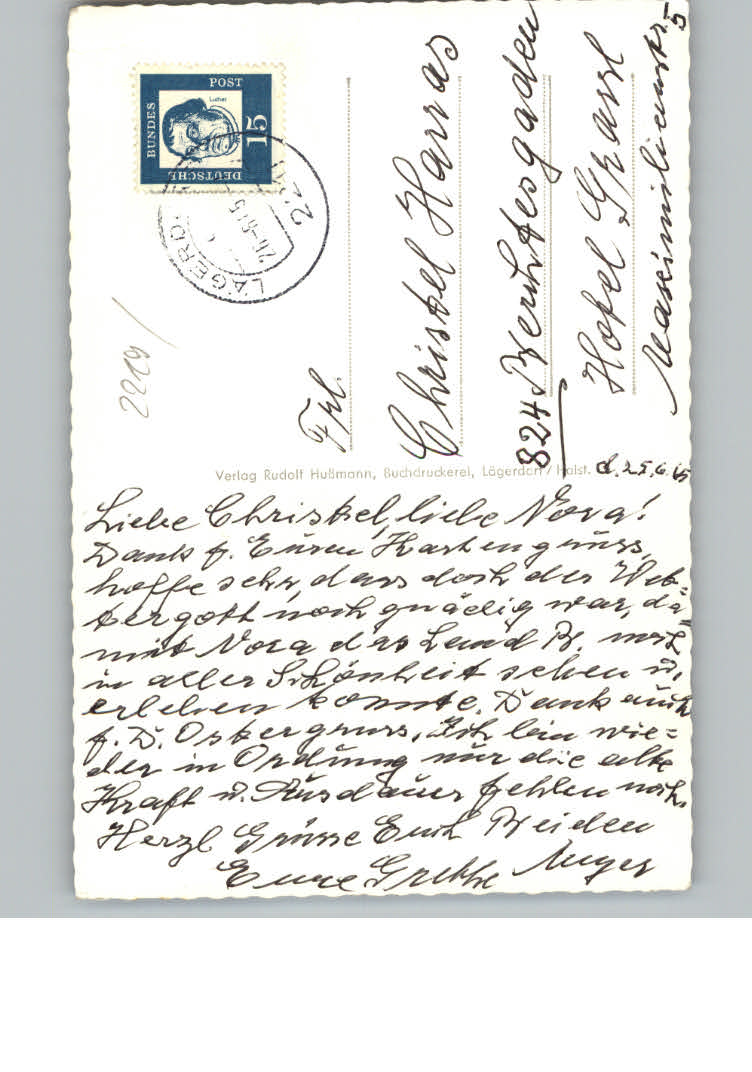 DEUTSCHE
BUNDES
POST
15
Luther
LÄGERD
22
2219
Frl.
Christel Harras
824 Berchtesgaden
Hotel Grassl
Maximilianstr. 5
Verlag Rudolf Hußmann, Buchdruckerei, Lägerdorf / Holst.
d. 25.6.65
Liebe Christel, liebe Nora!
Dank f. Euren Kartengruss,
hoffe sehr, dass doch der Wet=
tergott noch gnädig war, da=
mit Nora das Land B. noch
in aller Schönheit sehen u.
erleben konnte. Dank auch
f. D. Ostergruss. Ich bin wie=
der in Ordnung nur die alte
Kraft u. Ausdauer fehlen noch.
Herzl Grüsse Euch Beiden
Eure Grethe Meyer